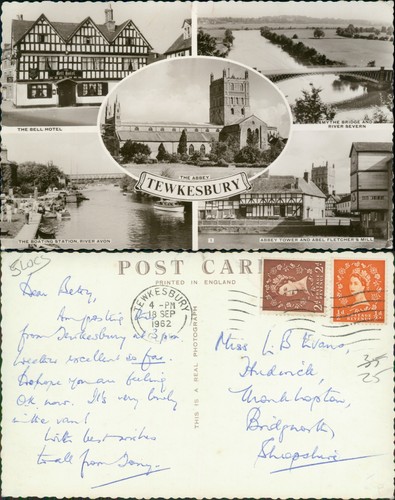 THE BELL HOTEL
MYTHE BRIDGE AND
RIVER SEVERN
THE ABBEY
TEWKESBURY
THE BOATING STATION, RIVER AVON
ABBEY TOWER AND ABEL FLETCHER'S MILL
POST CARD
PRINTED IN ENGLAND
THIS IS A REAL PHOTOGRAPH
TEWKESBURY
4 - PM
SEP
1962
Dear Betsy,
Am posting this
from Tewkesbury at 3pm
Weather excellent so far.
Do hope you are feeling
OK now. It's very lovely
in the van!
With best wishes
to all from Tony.
Miss L B Evans,
Monkhopton,
Bridgnorth,
Shropshire
25